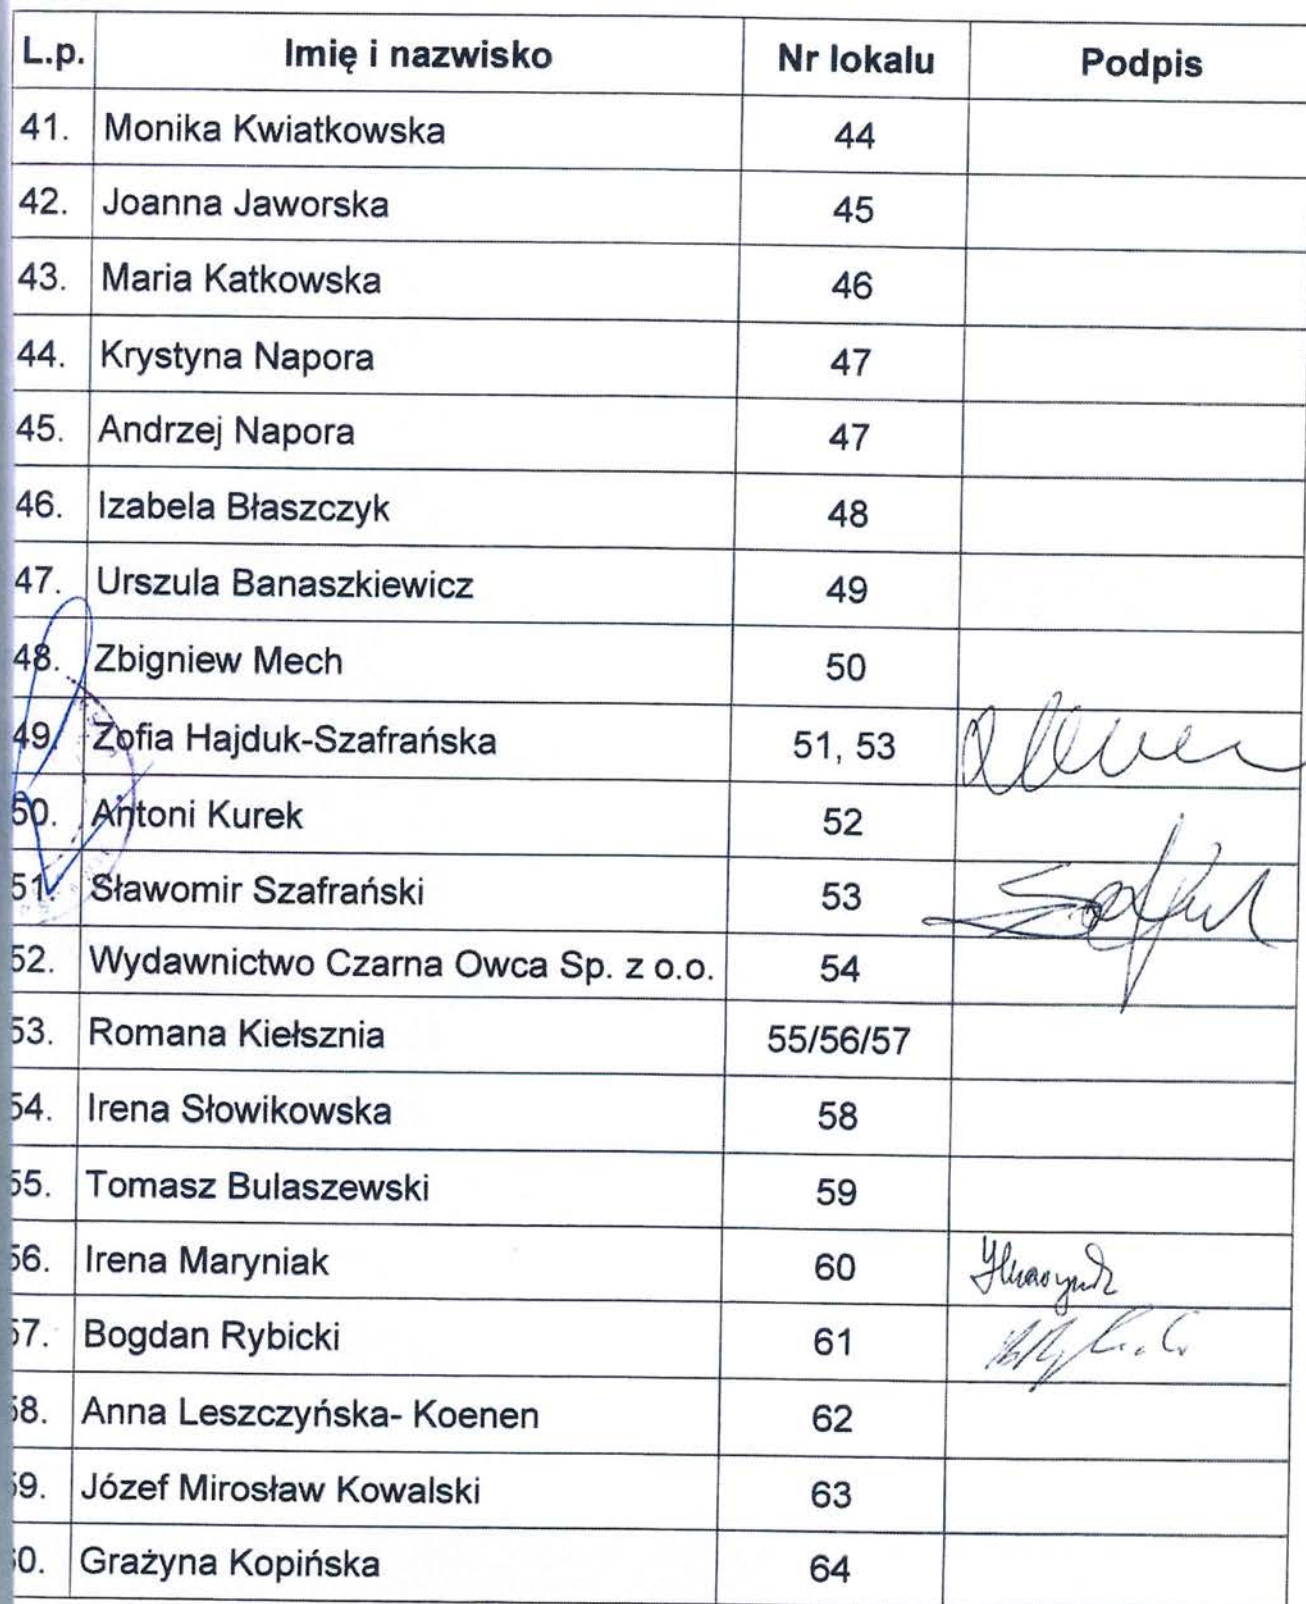 L.p. Imię i nazwisko Nr lokalu Podpis
41. Monika Kwiatkowska 44
42. Joanna Jaworska 45
43. Maria Katkowska 46
44. Krystyna Napora 47
45. Andrzej Napora 47
46. Izabela Błaszczyk 48
47. Urszula Banaszkiewicz 49
48. Zbigniew Mech 50
49. Zofia Hajduk-Szafrańska 51, 53
50. Antoni Kurek 52
51. Sławomir Szafrański 53
52. Wydawnictwo Czarna Owca Sp. z o.o. 54
53. Romana Kiełsznia 55/56/57
54. Irena Słowikowska 58
55. Tomasz Bulaszewski 59
56. Irena Maryniak 60
57. Bogdan Rybicki 61
58. Anna Leszczyńska- Koenen 62
59. Józef Mirosław Kowalski 63
60. Grażyna Kopińska 64